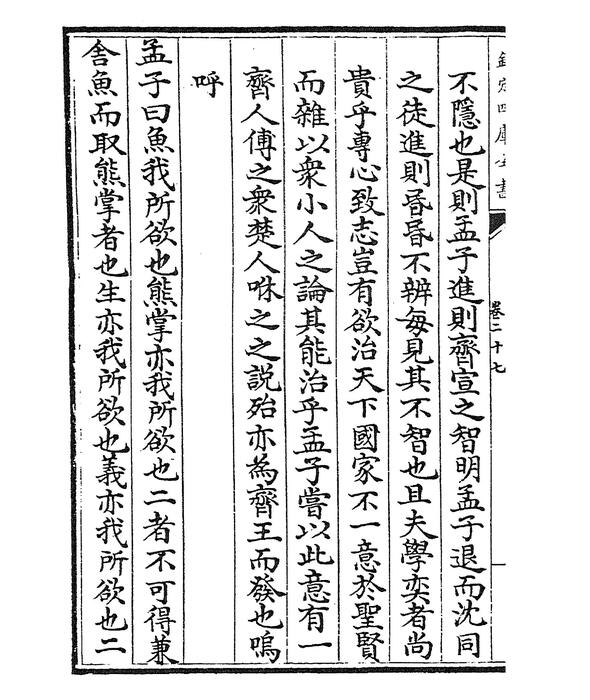 欽定四庫全書
卷二十七
不隱也是則孟子進則齊宣之智明孟子退而沈同
之徒進則昏昏不辨每見其不智也且夫學奕者尚
貴乎專心致志豈有欲治天下國家不一意於聖賢
而雜以衆小人之論其能治乎孟子嘗以此意有一
齊人傅之衆楚人咻之之説殆亦為齊王而發也嗚
呼
孟子曰魚我所欲也熊掌亦我所欲也二者不可得兼
舍魚而取熊掌者也生亦我所欲也義亦我所欲也二